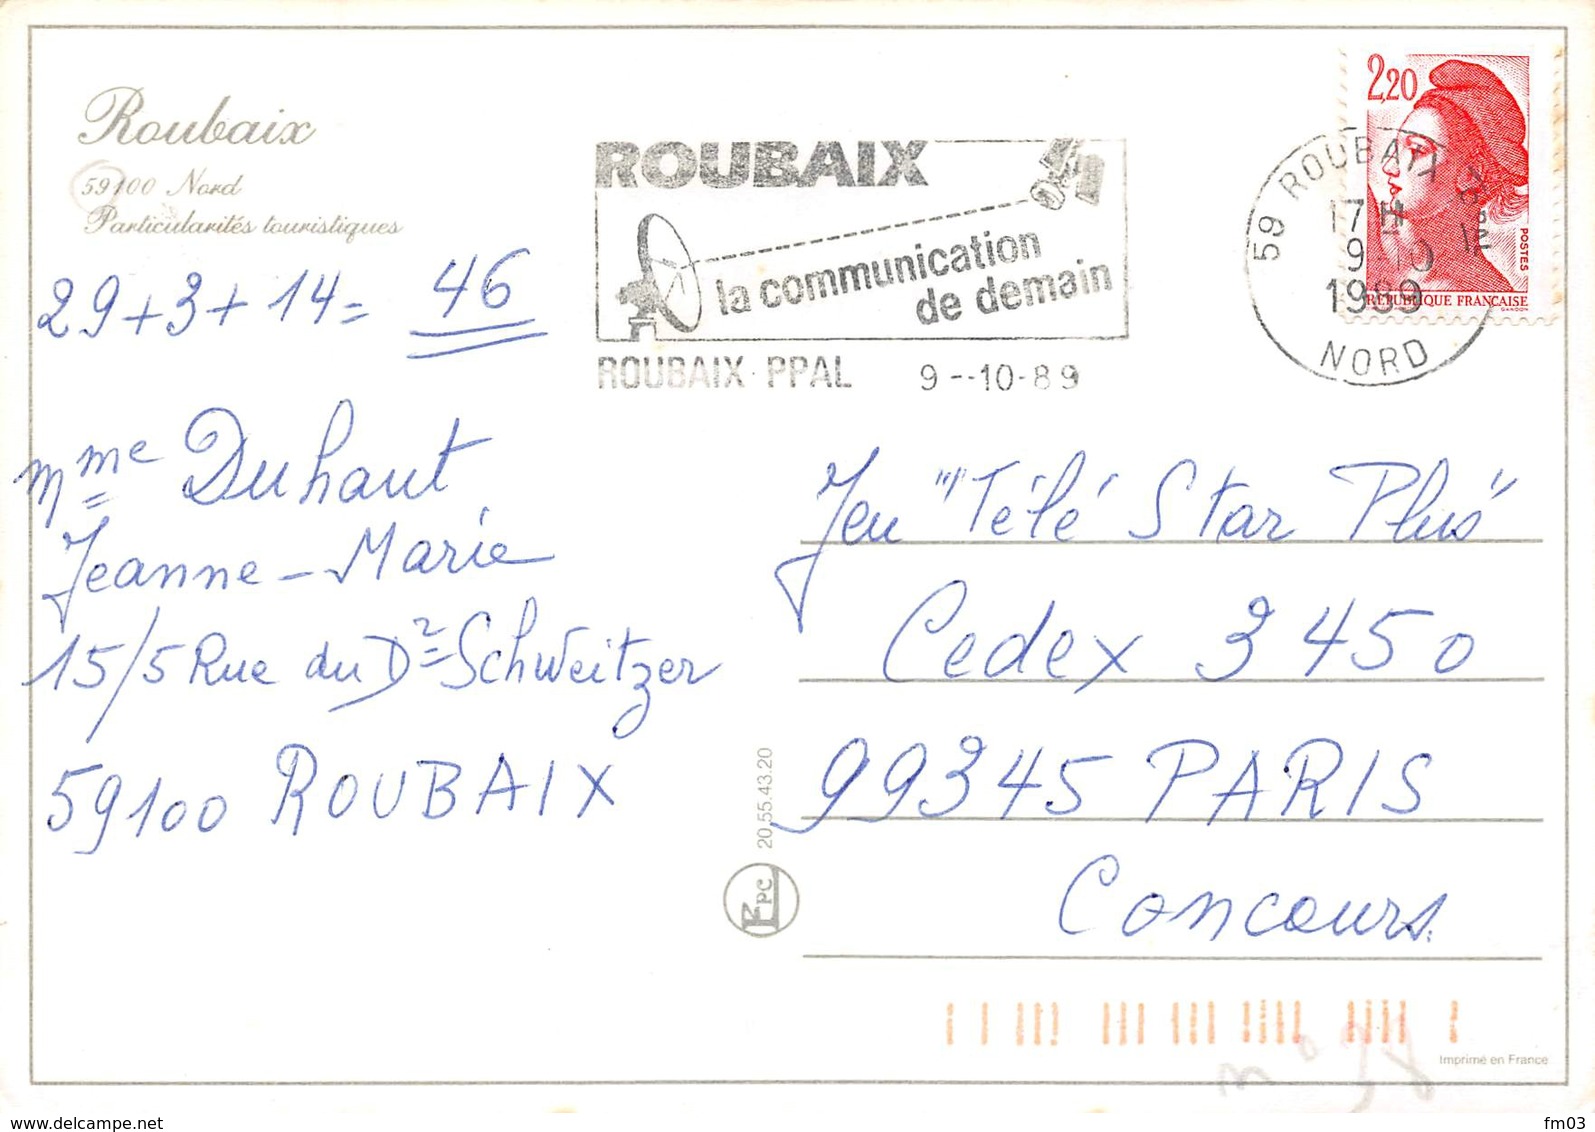 Roubaix
59100 Nord
Particularités touristiques
29+3+14= 46
Mme Duhaut
Jeanne-Marie
15/5 Rue du Dr Schweitzer
59100 ROUBAIX
ROUBAIX
la communication
de demain
ROUBAIX PPAL 9--10-89
59 ROUBAIX PPAL
17H
9-10
1989
NORD
2,20
POSTES
REPUBLIQUE FRANÇAISE
GANDON
Jeu "Télé Star Plus"
Cedex 3450
99345 PARIS
Concours
20.55.43.20
PC
Imprimé en France
n° 38
www.delcampe.net
fm03